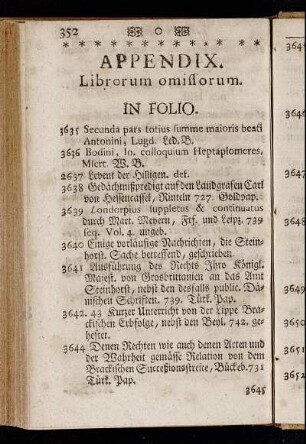 352
APPENDIX.
Librorum omissorum.
IN FOLIO.
3635 Secunda pars totius summe maioris beati
Antonini, Lugd. Led. B.
3636 Bodini, Io. colloquium Heptaplomeres.
Mscrt. W. B.
2637 Levent der Hilligen. def.
3638 Gedächtnißpredigt auf den Landgrafen Carl
von Hessencassel, Rinteln 727. Goldpap.
3639 Londorpius suppletus & continuatus
durch Mart. Meyern, Frf. und Leipz. 739
seq. Vol. 4. ungeb.
3640 Einige vorläufige Nachrichten, die Stein-
horst. Sache betreffend, geschrieben
3641 Ausführung des Rechts Jhro Königl.
Majest. von Grosbrittannien an das Amt
Steinhorst, nebst den desfalls public. Dä-
nischen Schriften. 739. Türk. Pap.
3642. 43 Kurzer Unterricht von der Lippe Brac-
kischen Erbfolge, nebst den Beyl. 742. ge-
heftet.
3644 Denen Rechten wie auch denen Acten und
der Wahrheit gemässe Relation von dem
Brackischen Successionsstreite, Bückeb. 731
Türk. Pap.
3645
3646
3647
3648
3649
3650
3651
3652